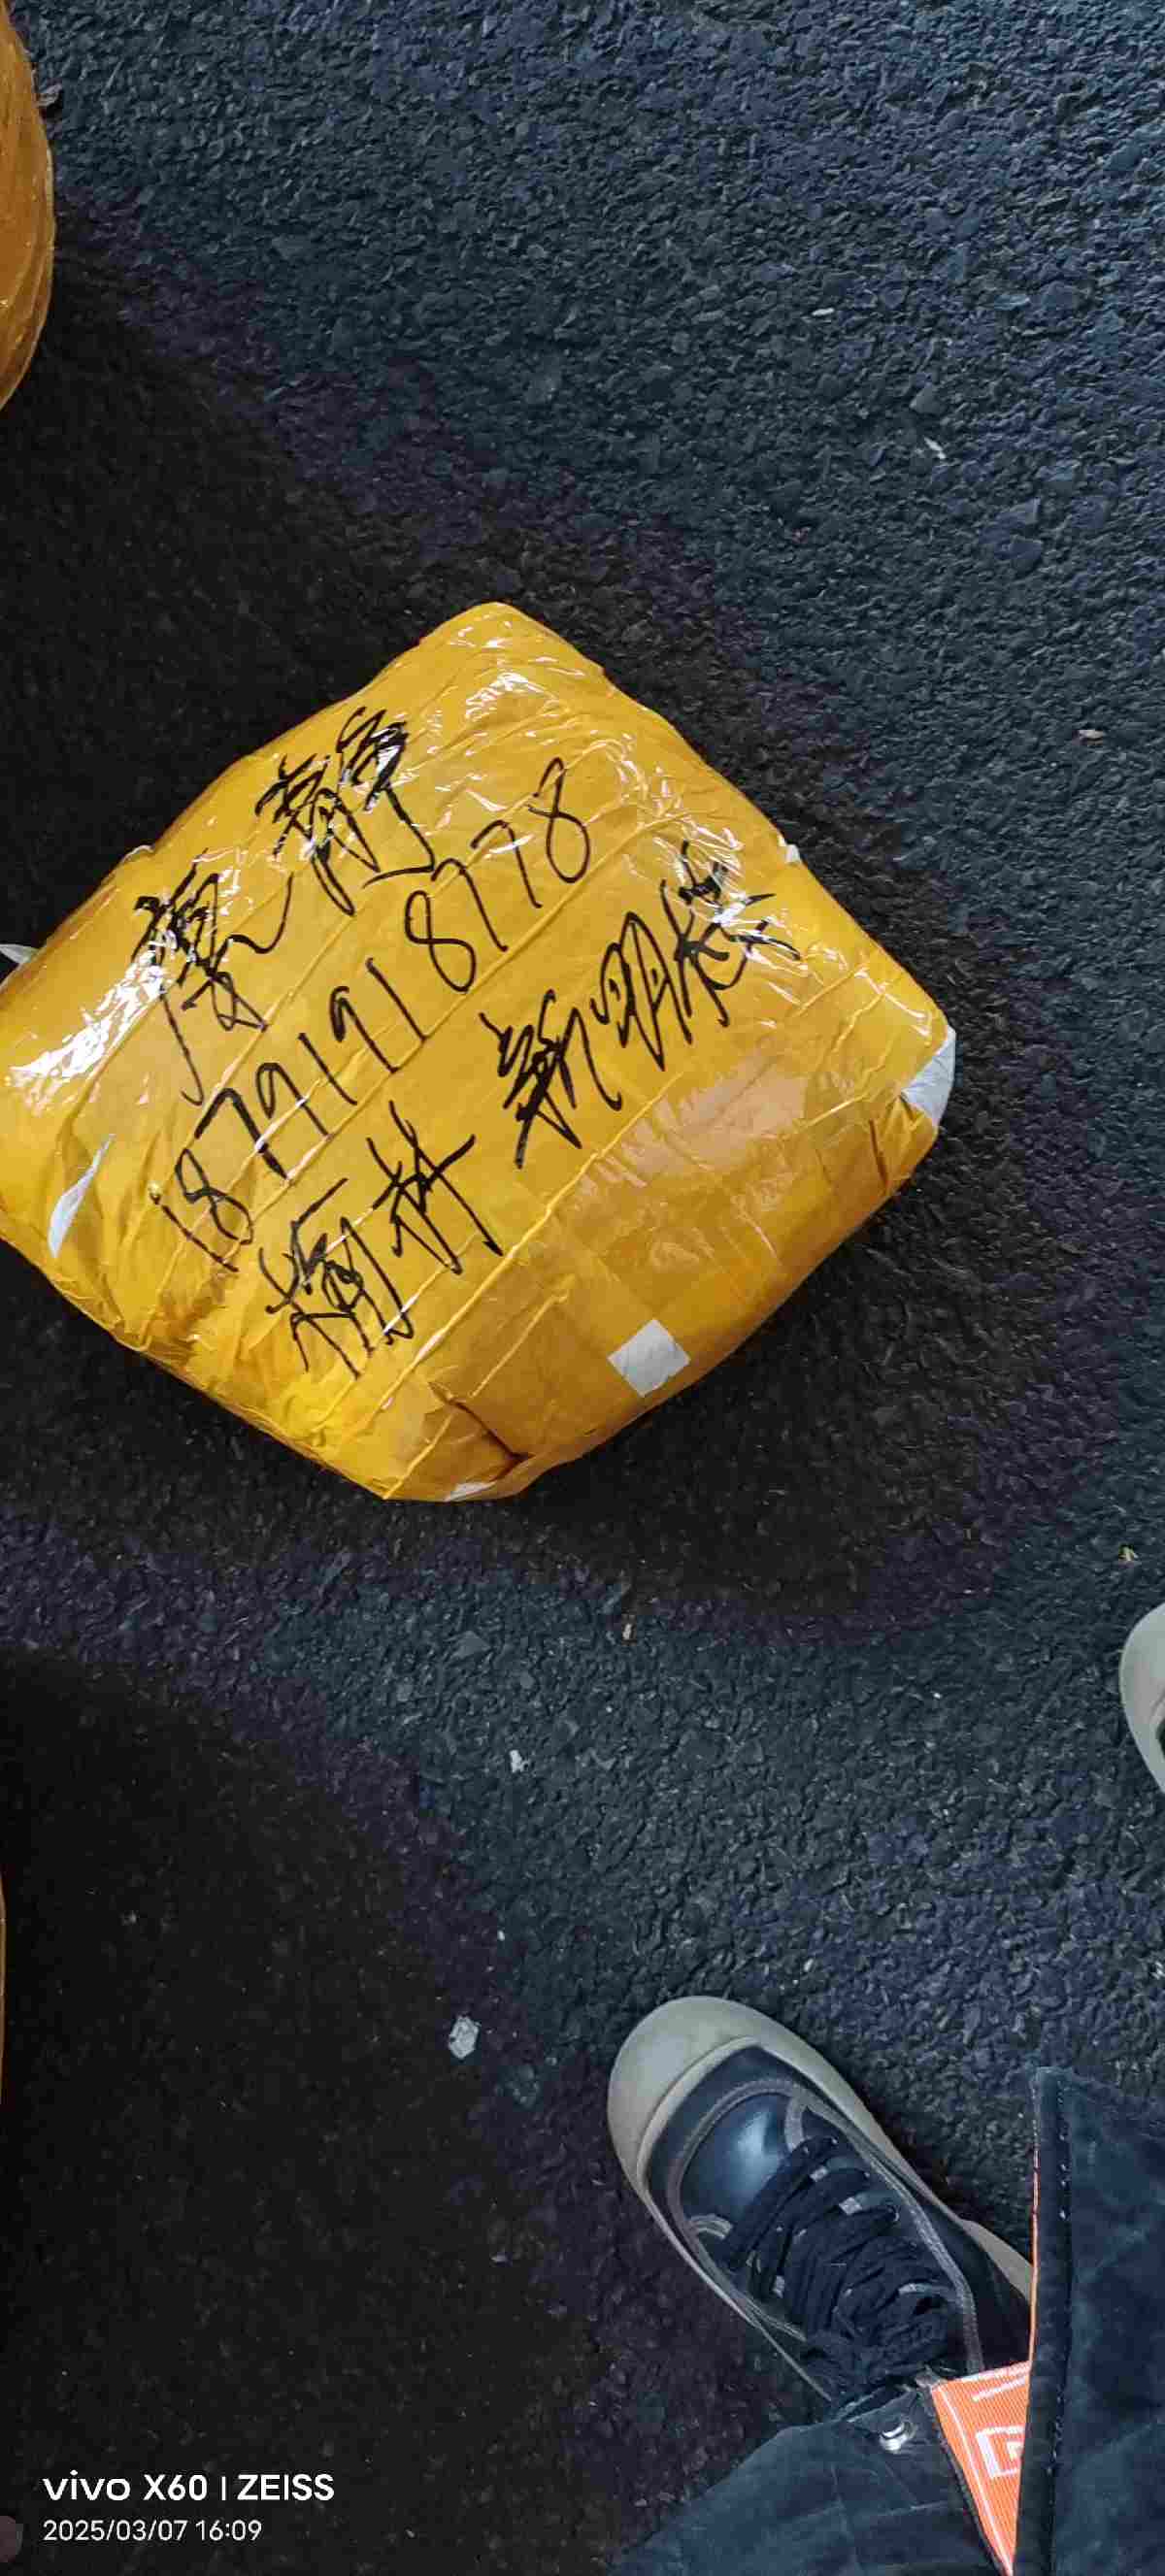 18791918778
榆林 新明楼
vivo X60 | ZEISS
2025/03/07 16:09